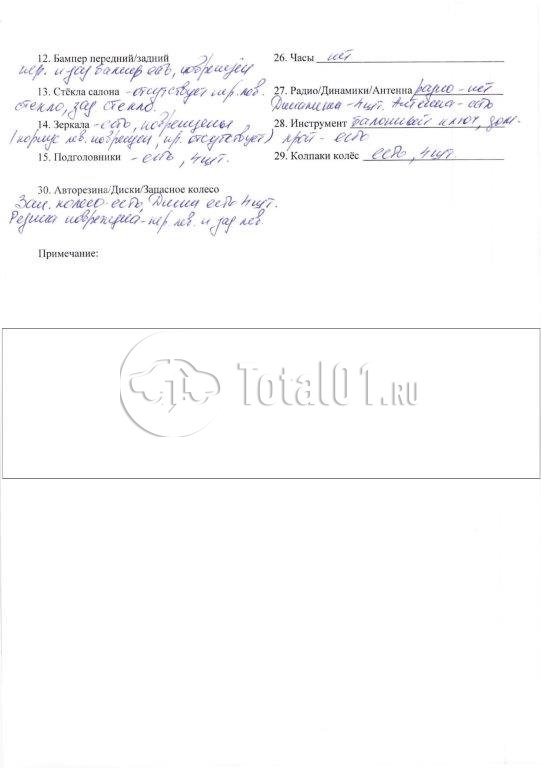 12. Бампер передний/задний
пер. и зад бампер есть, повреждён
13. Стёкла салона - отсутствует пер. лев.
стекло, зад стекло.
14. Зеркала - есть, повреждены
(корпус лев. повреждён, пр. отсутствует)
15. Подголовники - есть, 4 шт.
26. Часы нет
27. Радио/Динамики/Антенна радио - нет
Динамики - 4 шт. Антенна - есть
28. Инструмент балонный ключ, дом-
крат - есть
29. Колпаки колёс есть, 4 шт.
30. Авторезина/Диски/Запасное колесо
Зап. колесо - есть, Диски есть 4 шт.
Резина повреждена - пер лев. и зад лев.
Примечание:
Total01.RU